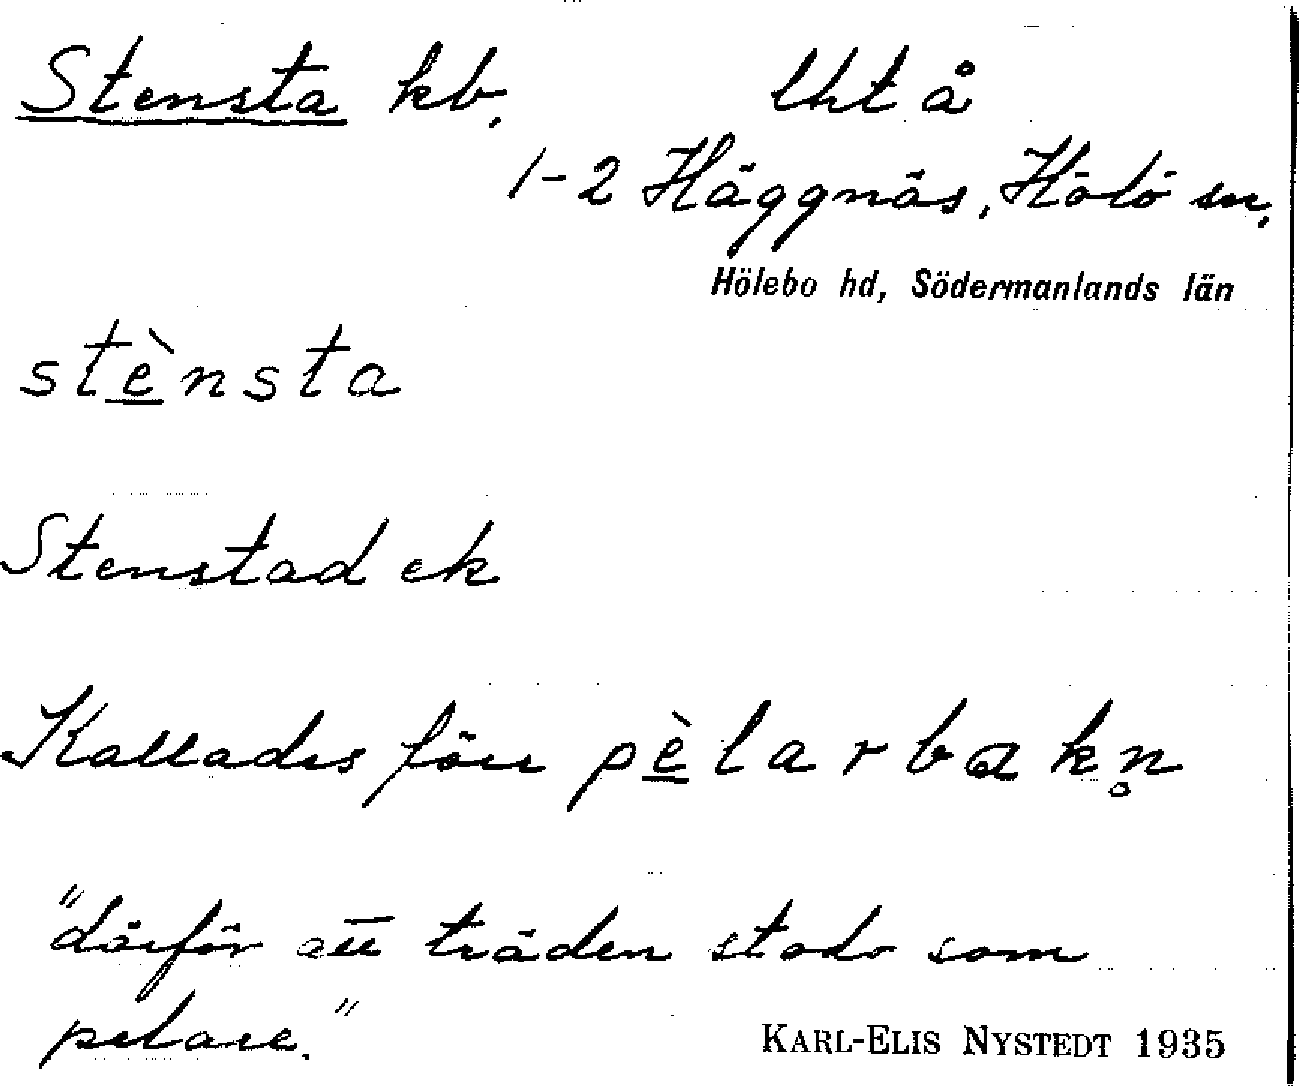 Stensta kb. Uht å
1-2 Häggnäs, Hölö sn.
Hölebo hd, Södermanlands län
stènsta
Stenstad ek
Kallades förr pèlarbakn̥
"därför att träden stodo som
pelare."
KARL-ELIS NYSTEDT 1935